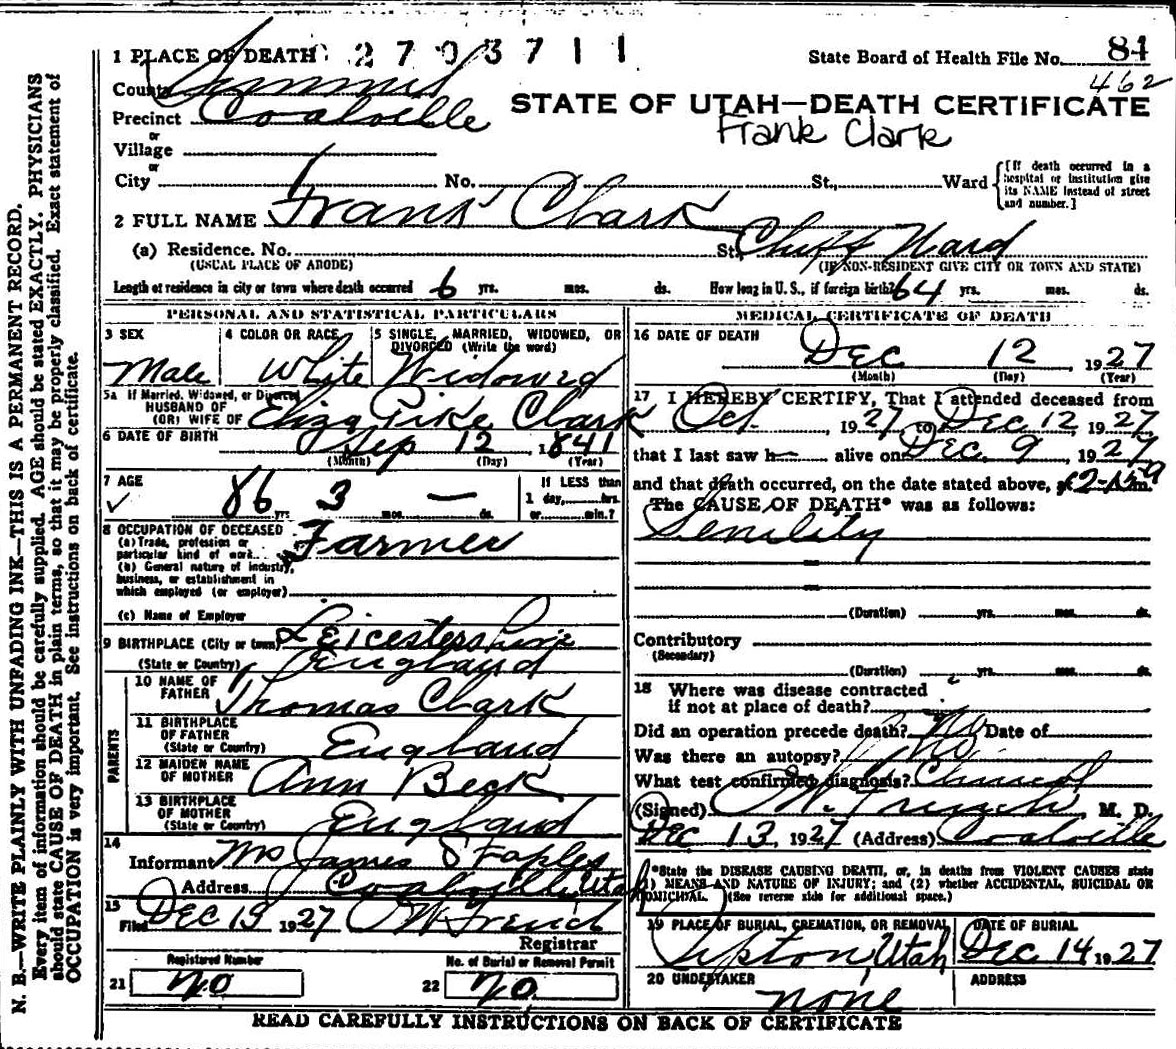 1 PLACE OF DEATH 2 7 0 3 7 1 1 State Board of Health File No. 84
462
County Summit
STATE OF UTAH—DEATH CERTIFICATE
Precinct Coalville
Frank Clark
or
Village
or
City No. St., Ward
[If death occurred in a hospital or institution give its NAME instead of street and number.]
2 FULL NAME Frank Clark
(a) Residence. No. St. Cluff Ward
(USUAL PLACE OF ABODE) (IF NON-RESIDENT GIVE CITY OR TOWN AND STATE)
Length of residence in city or town where death occurred 6 yrs. mos. ds. How long in U. S., if foreign birth? 64 yrs. mos. ds.
PERSONAL AND STATISTICAL PARTICULARS
3 SEX
Male
4 COLOR OR RACE
White
5 SINGLE, MARRIED, WIDOWED, OR
DIVORCED (Write the word)
Widowed
5a If Married, Widowed, or Divorced
HUSBAND OF
(OR) WIFE OF Eliza Pike Clark
6 DATE OF BIRTH Sep 12 1841
(Month) (Day) (Year)
7 AGE
86 yrs. 3 mos. — ds.
If LESS than
1 day, hrs.
or min.?
8 OCCUPATION OF DECEASED
(a) Trade, profession or
particular kind of work Farmer
(b) General nature of industry,
business, or establishment in
which employed (or employer)
(c) Name of Employer
9 BIRTHPLACE (City or town) Leicestershire
(State or Country) England
PARENTS
10 NAME OF
FATHER Thomas Clark
11 BIRTHPLACE
OF FATHER
(State or Country) England
12 MAIDEN NAME
OF MOTHER Ann Beck
13 BIRTHPLACE
OF MOTHER
(State or Country) England
14
Informant Mrs James Staples
Address Coalville Utah
15
Filed Dec 13 1927 French
Registrar
Registered Number
21 no
No. of Burial or Removal Permit
22 no
MEDICAL CERTIFICATE OF DEATH
16 DATE OF DEATH
Dec 12 1927
(Month) (Day) (Year)
17 I HEREBY CERTIFY, That I attended deceased from
Oct 1927 to Dec 12, 1927
that I last saw h— alive on Dec. 9 1927
and that death occurred, on the date stated above, at m.
The CAUSE OF DEATH* was as follows:
Senility
(Duration) yrs. mos. ds.
Contributory
(Secondary)
(Duration) yrs. mos. ds.
18 Where was disease contracted
if not at place of death?
Did an operation precede death? No Date of
Was there an autopsy? No
What test confirmed diagnosis? Clinical
(Signed) French M. D.
Dec 13, 1927 (Address) Coalville
*State the DISEASE CAUSING DEATH, or, in deaths from VIOLENT CAUSES state
(1) MEANS AND NATURE OF INJURY; and (2) whether ACCIDENTAL, SUICIDAL OR
HOMICIDAL. (See reverse side for additional space.)
19 PLACE OF BURIAL, CREMATION, OR REMOVAL
Upton, Utah
DATE OF BURIAL
Dec 14 1927
20 UNDERTAKER
none
ADDRESS
READ CAREFULLY INSTRUCTIONS ON BACK OF CERTIFICATE
N. B.—WRITE PLAINLY WITH UNFADING INK—THIS IS A PERMANENT RECORD.
Every item of information should be carefully supplied. AGE should be stated EXACTLY. PHYSICIANS
should state CAUSE OF DEATH in plain terms, so that it may be properly classified. Exact statement of
OCCUPATION is very important. See instructions on back of certificate.